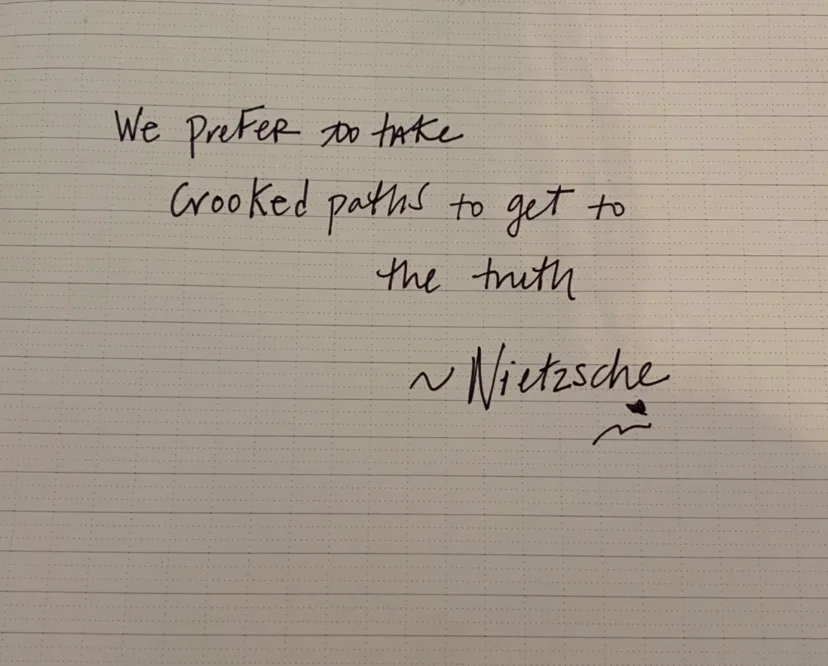 We prefer to take
Crooked paths to get to
the truth
~ Nietzsche